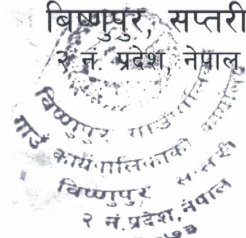 बिष्णुपुर, सप्तरी
२ नं. प्रदेश, नेपाल
बिष्णुपुर गाउँपालिका
गाउँ कार्यपालिकाको कार्यालय
बिष्णुपुर, सप्तरी
२ नं. प्रदेश, नेपाल